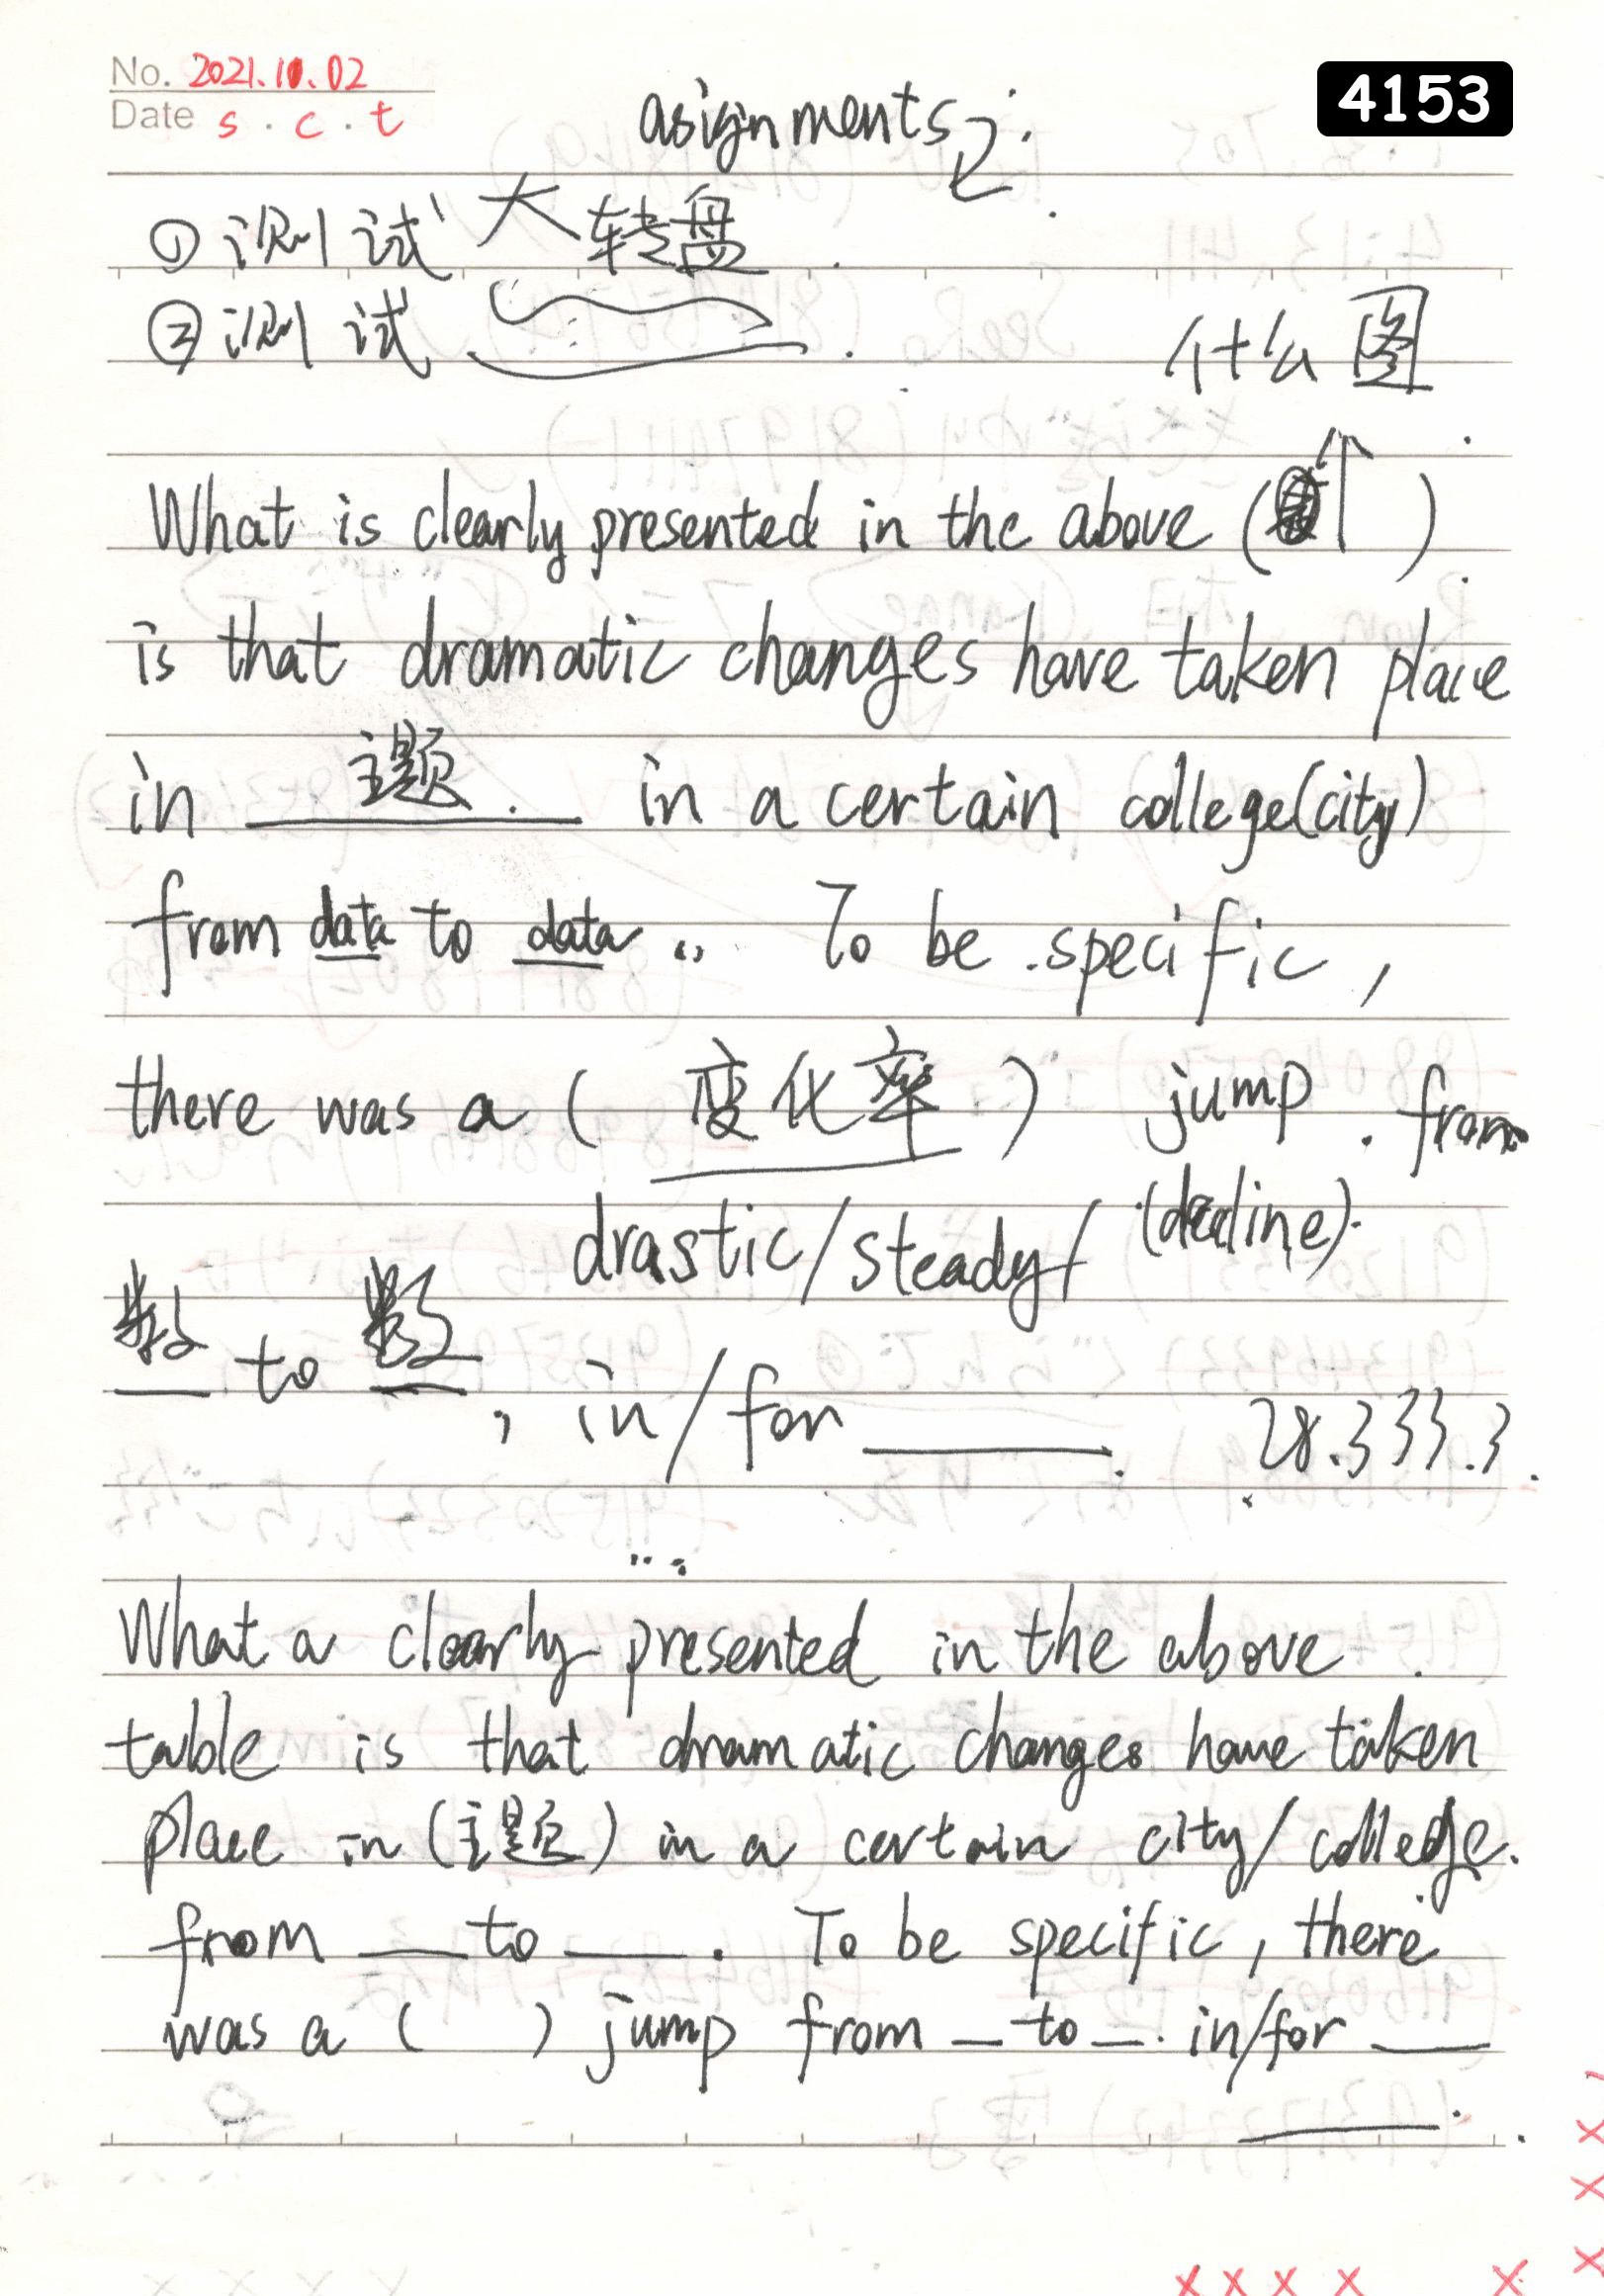 No. 2021.10.02
4153
Date s.c.t
asignments
① 测试大转盘
② 测试
什么图
What is clearly presented in the above ( )
is that dramatic changes have taken place
in 主题. in a certain college(city)
from data to data. To be specific,
there was a ( 变化率 ) jump from
drastic/steady/ (decline).
数 to 数, in/for ____. 28.333.3.
What a clearly presented in the above.
table is that dramatic changes have taken
place in (主题) in a certain city/college.
from ___ to ___. To be specific, there
was a ( ) jump from _ to _. in/for ___
____.
x
x
x x x x x x